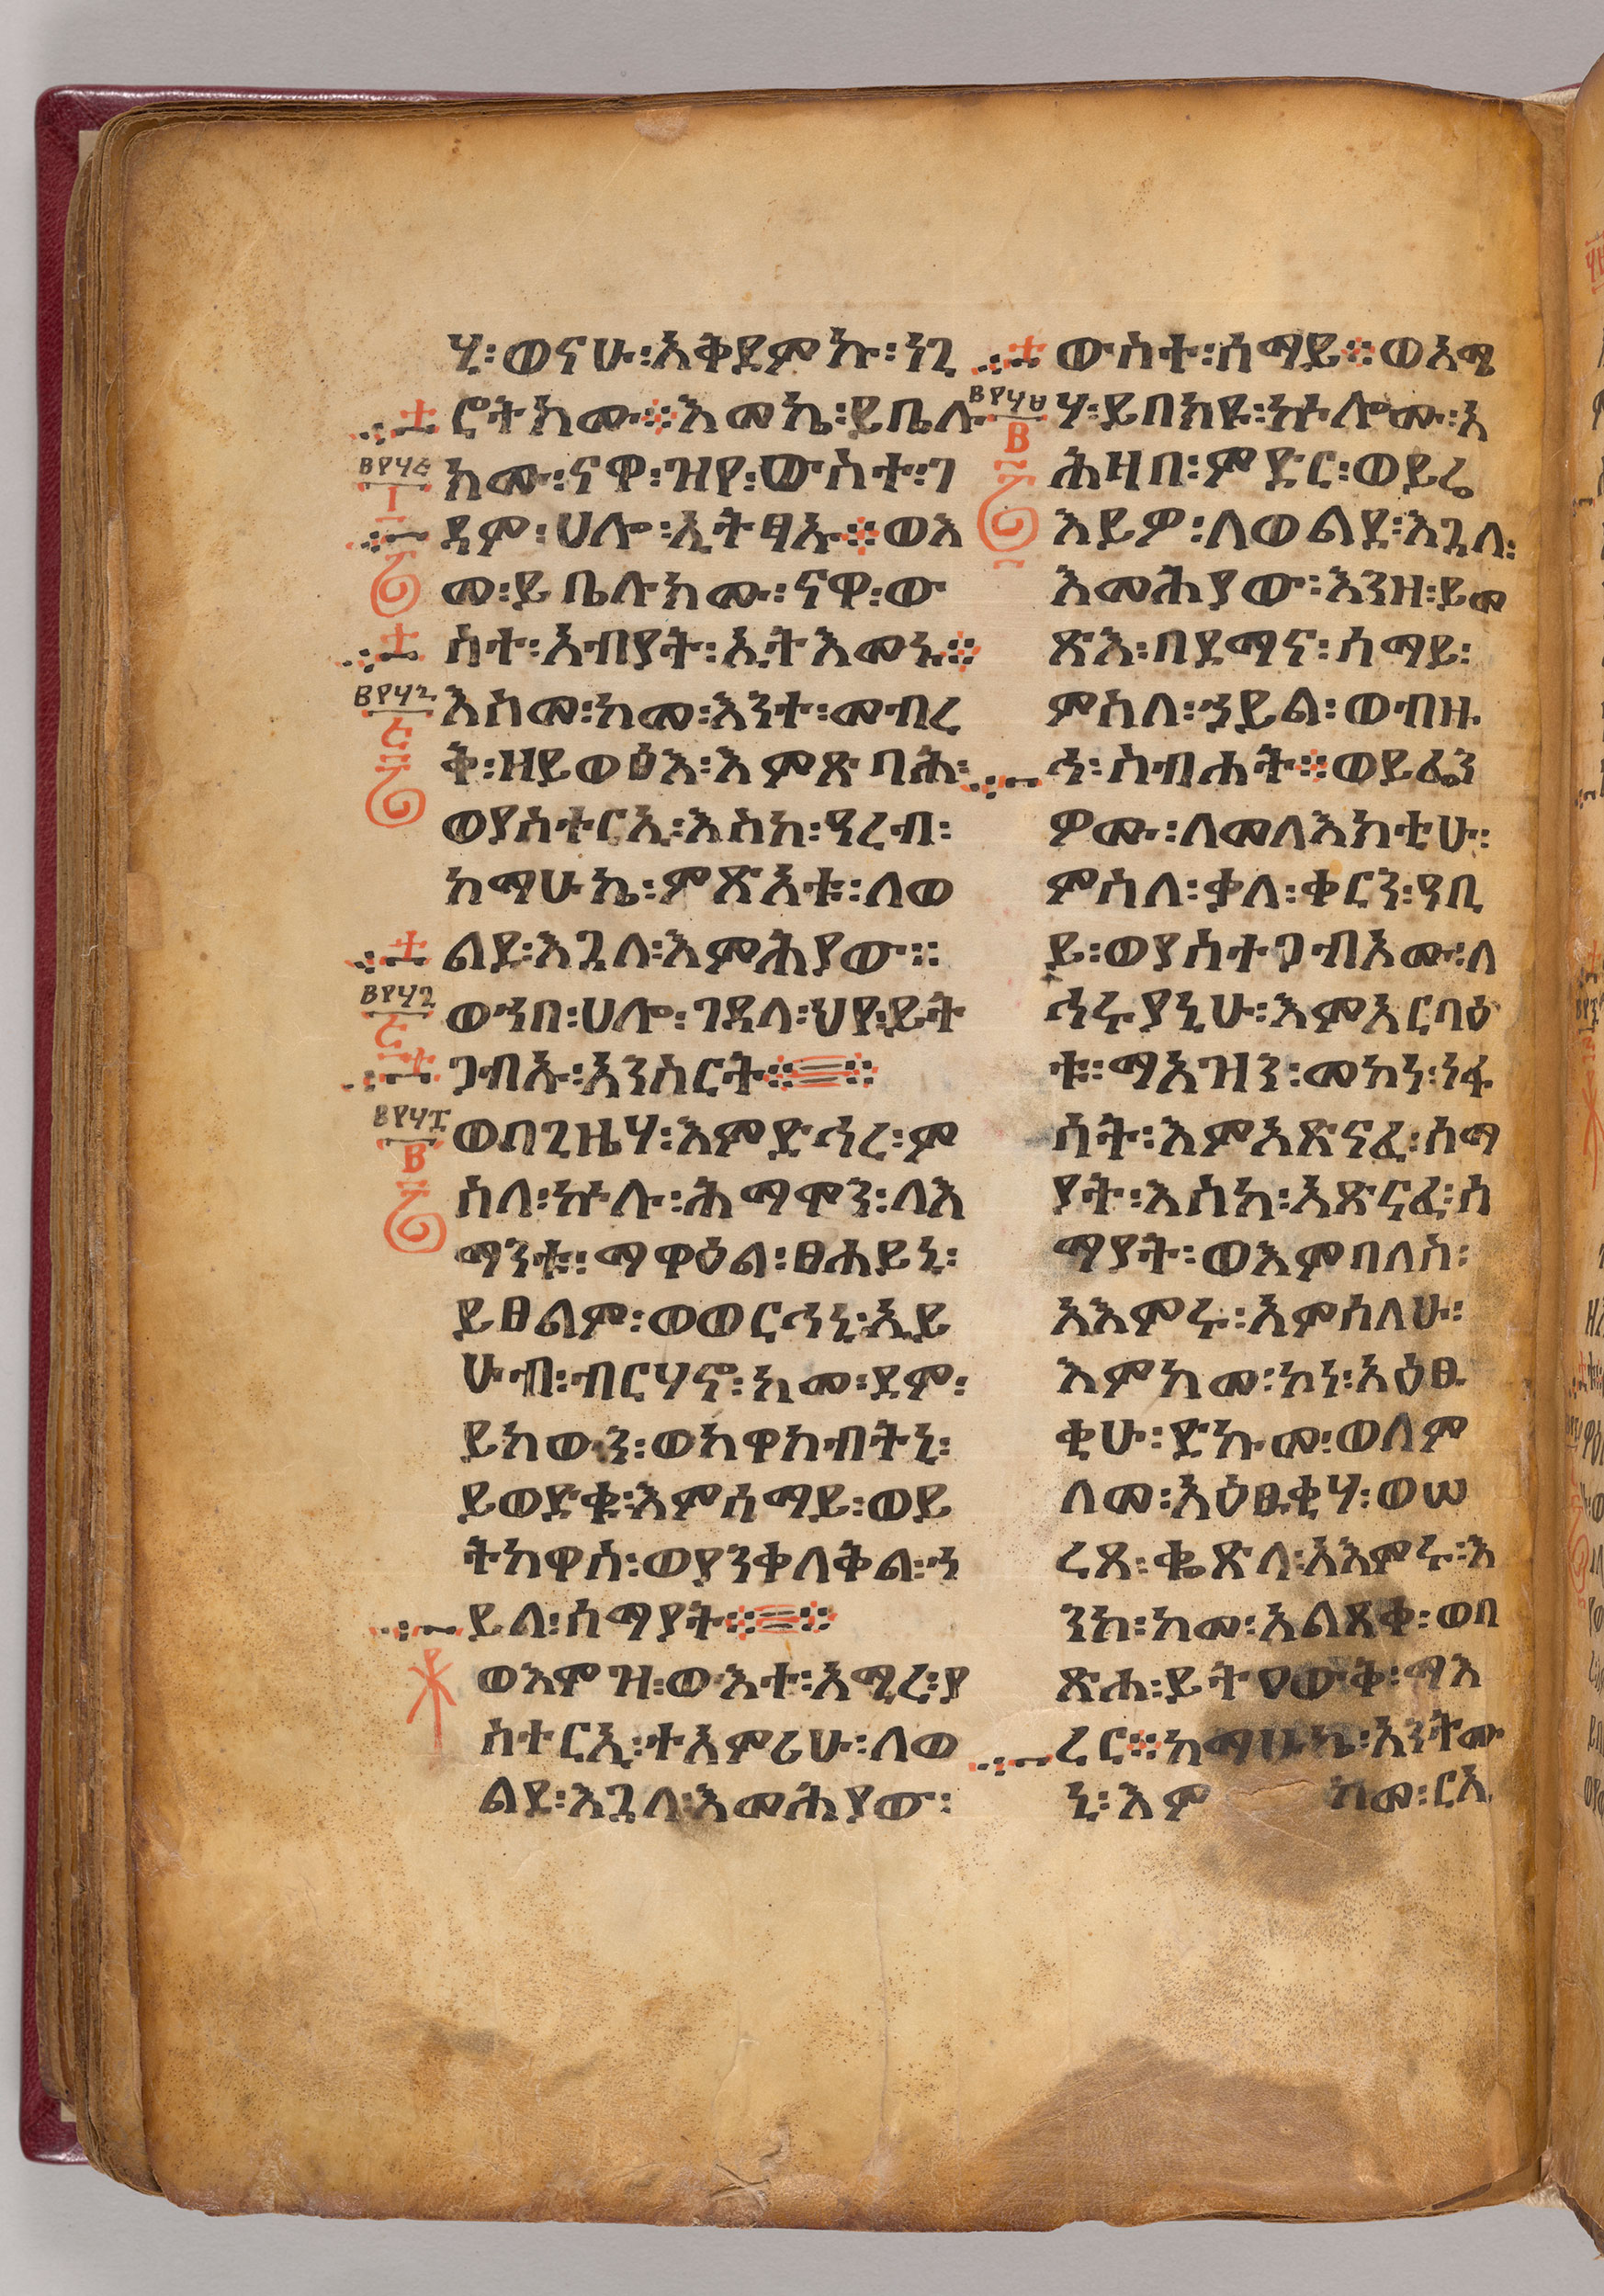 ሂ፡ወናሁ፡አቅደምኩ፡ነጊ
ሮትክሙ፨እመኬ፡ይቤሉ
ክሙ፡ናዋ፡ዝየ፡ውስተ፡ገ
ዳም፡ሀሎ፡ኢትፃኡ፨ወእ
መ፡ይቤሉክሙ፡ናዋ፡ው
ስተ፡አብያት፡ኢትእመኑ፨
እስመ፡ከመ፡እንተ፡መብረ
ቅ፡ዘይወፅእ፡እምጽባሕ፡
ወያስተርኢ፡እስከ፡ዓረብ፡
ከማሁኬ፡ምጽአቱ፡ለወ
ልደ፡እጓለ፡እምሕያው።
ወኀበ፡ሀሎ፡ገደላ፡ህየ፡ይት
ጋብኡ፡አንስርት፨
ወበጊዜሃ፡እምድኅረ፡ም
ስለ፡ኵሉ፡ሕማሞን፡ለእ
ማንቱ፡ማዋዕል፡ፀሐይኒ፡
ይፀልም፡ወወርኅኒ፡ኢይ
ሁብ፡ብርሃኖ፡ከመ፡ደም፡
ይከውን፡ወከዋክብትኒ፡
ይወድቁ፡እምሰማይ፡ወይ
ትከዋስ፡ወያንቀለቅል፡ኀ
ይለ፡ሰማያት፨
ወእምዝ፡ውእተ፡አሚረ፡ያ
ስተርኢ፡ተአምሪሁ፡ለወ
ልደ፡እጓለ፡እመሕያው፡
ውስተ፡ሰማይ፨ወአሜ
ሃ፡ይበክዩ፡ኵሎሙ፡አ
ሕዛበ፡ምድር፡ወይሬ
እይዎ፡ለወልደ፡እጓለ፡
እመሕያው፡እንዘ፡ይመ
ጽእ፡በደማና፡ሰማይ፡
ምስለ፡ኃይል፡ወብዙ
ኅ፡ስብሐት፨ወይፌን
ዎሙ፡ለመለእክቲሁ፡
ምስለ፡ቃለ፡ቀርን፡ዓቢ
ይ፡ወያስተጋብእሙ፡ለ
ኅሩያኒሁ፡እምአርባዕ
ቱ፡ማእዝን፡መከነ፡ነፋ
ሳት፡እምአጽናፈ፡ሰማ
ያት፡እስከ፡አጽናፈ፡ሰ
ማያት፡ወእምበለስ፡
አእምሩ፡አምሰለሁ፡
እምከመ፡ኮነ፡አዕፁ
ቂሁ፡ድኩመ፡ወለም
ለመ፡አዕፁቂሃ፡ወሠ
ረጸ፡ቈጽላ፡አእምሩ፡እ
ንከ፡ከመ፡አልጸቀ፡ወበ
ጽሐ፡ይትዐውቅ፡ማእ
ረር፨ከማሁኬ፡አንትሙ
ኒ፡እም ከመ፡ርእ
፪፻፵፭
፫
፪፻፵፮
፭
፪፻፵፯
፭
፪፻፵፰
፪
፪፻፵፱
፪